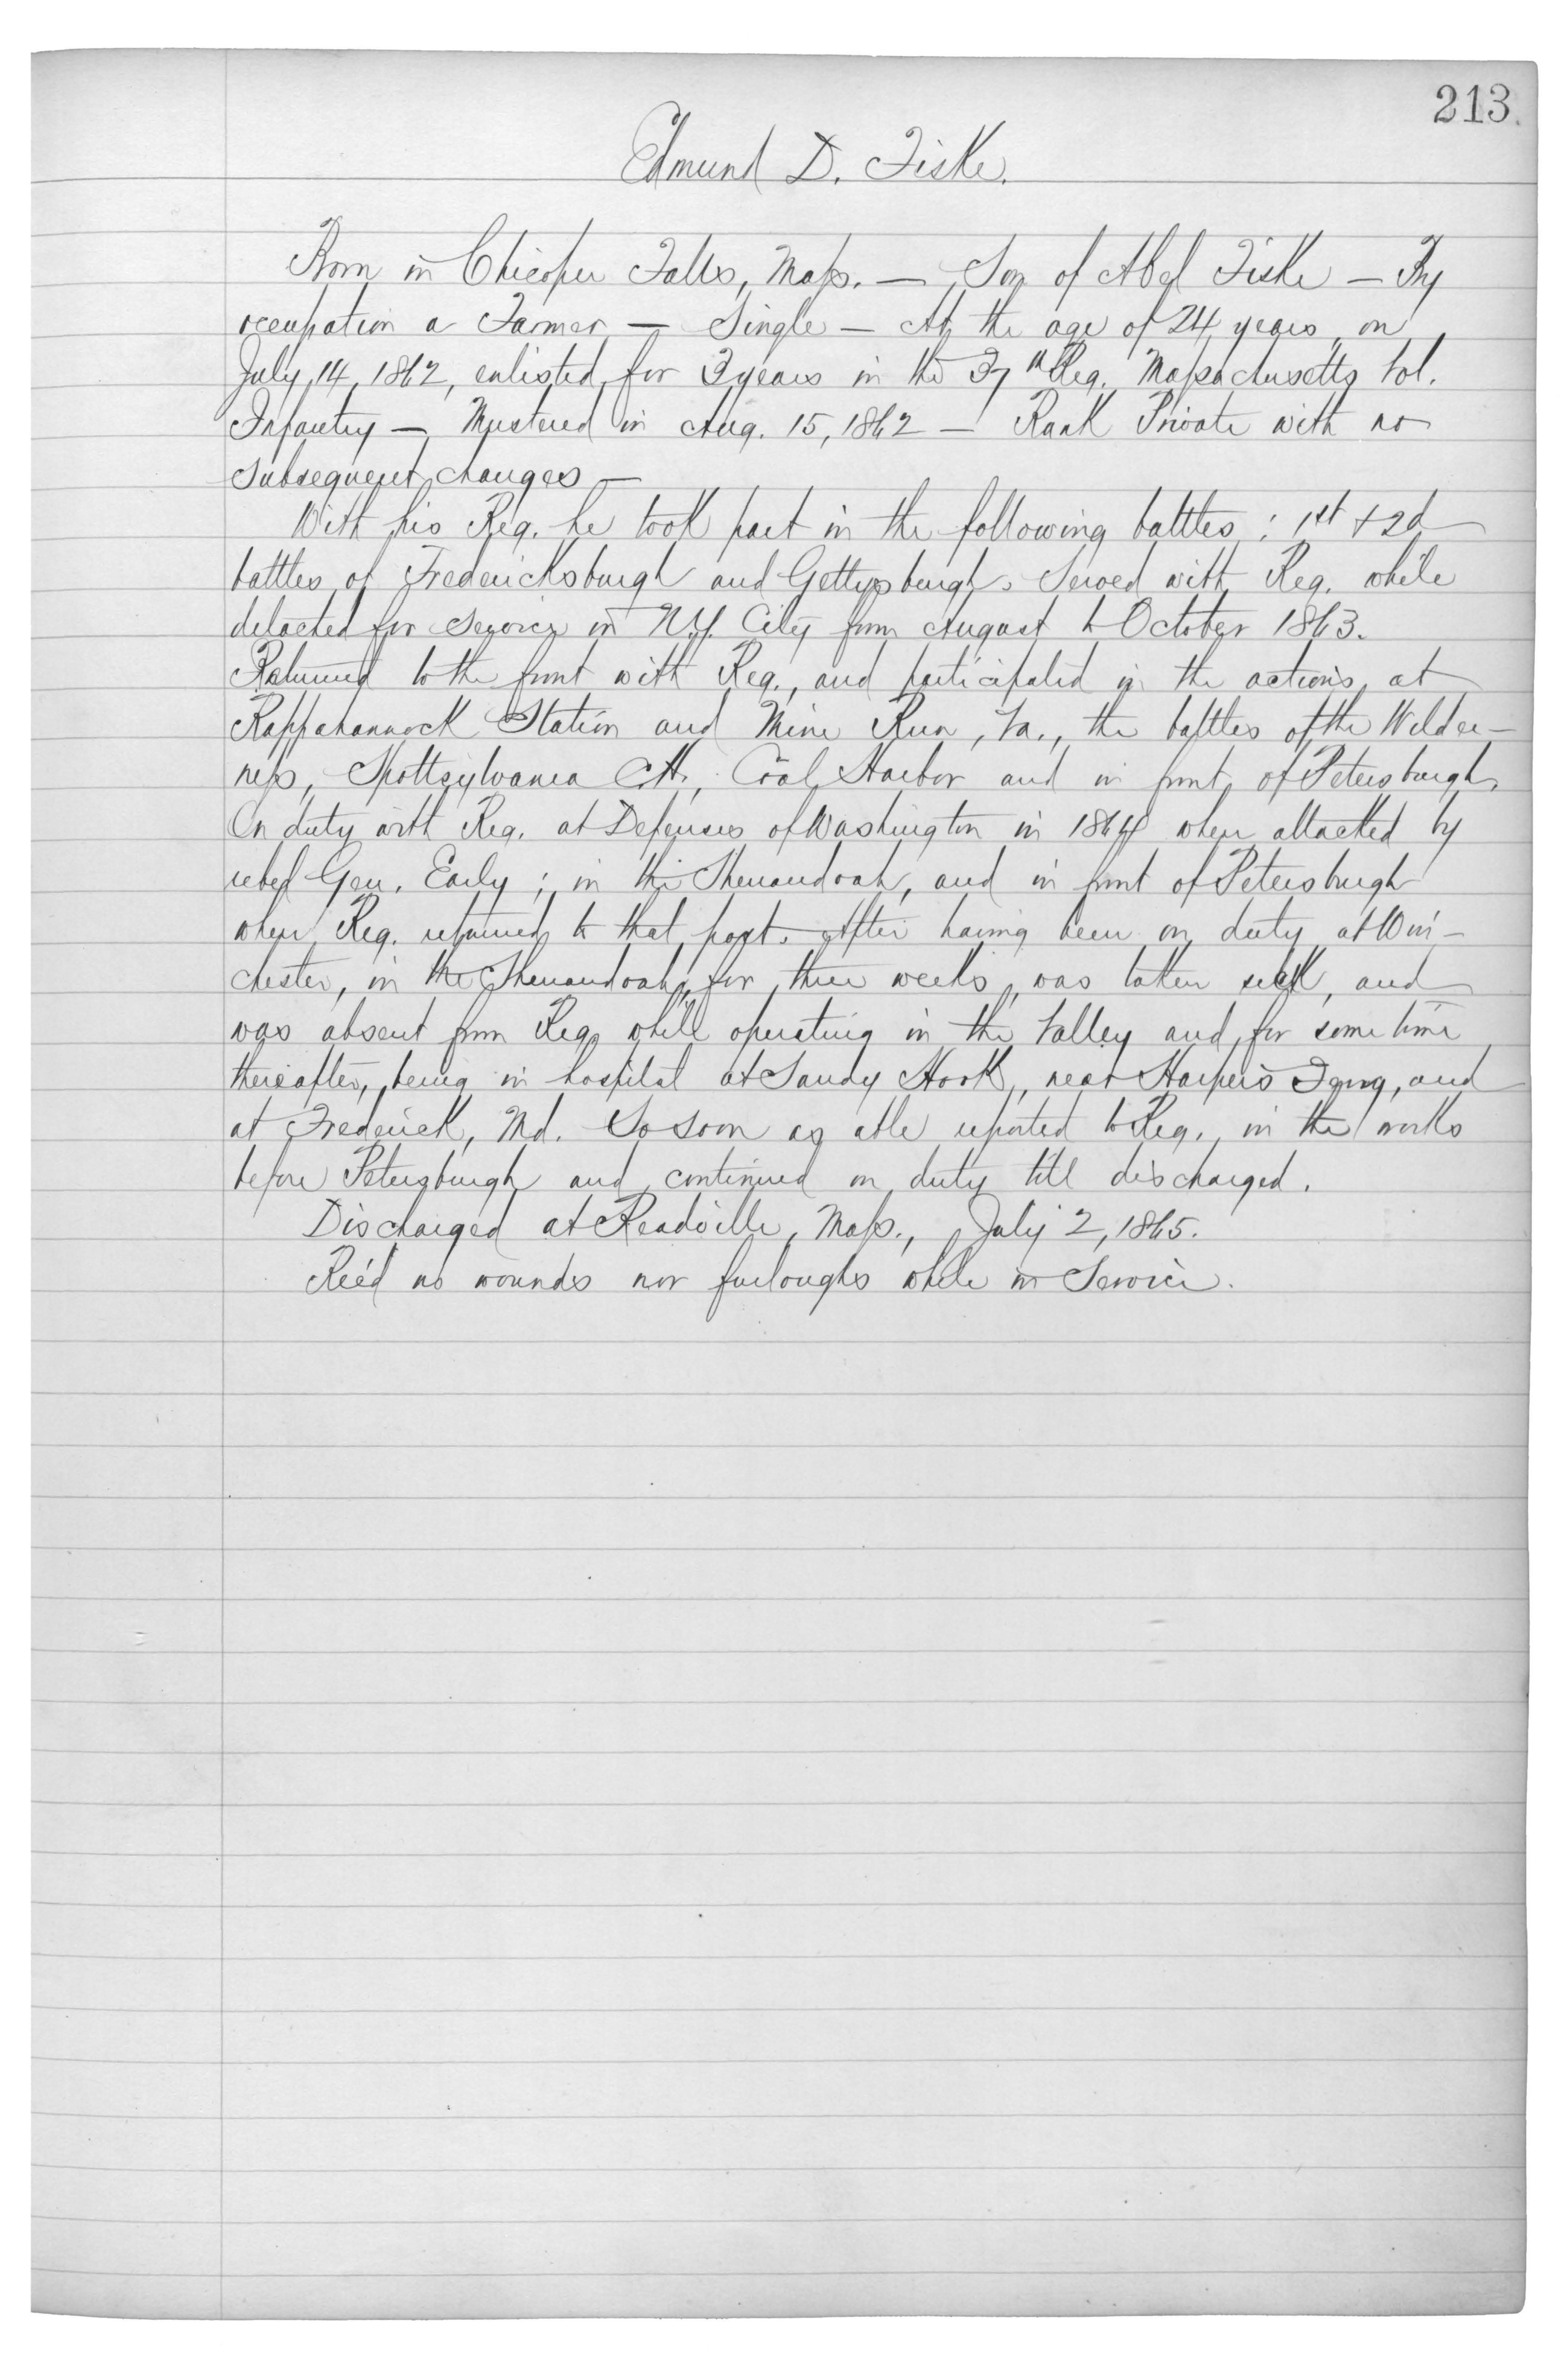 213.
Edmund D. Fiske.
Born in Chicopee Falls, Mass. — Son of Abel Fiske — By
occupation a Farmer — Single — At the age of 24 years, on
July 14, 1862, enlisted for 3 years in the 37th Reg. Massachusetts Vol.
Infantry — Mustered in Aug. 15, 1862 — Rank Private with no
subsequent changes —
With his Reg. he took part in the following battles; 1st + 2d
battles of Fredericksburgh and Gettysburgh. Served with Reg. while
detached for service in N.Y. City from August to October 1863.
Returned to the front with Reg., and participated in the actions at
Rappahannock Station and Mine Run, Va., the battles of the Wilder-
ness, Spottsylvania C.H., Coal Harbor and in front of Petersburgh.
On duty with Reg. at Defenses of Washington in 1864 when attacked by
rebel Gen. Early; in the Shenandoah, and in front of Petersburgh
when Reg. returned to that post. After having been on duty at Win-
chester, in the Shenandoah, for three weeks, was taken sick, and
was absent from Reg. while operating in the Valley and for some time
thereafter, being in hospital at Sandy Hook, near Harpers Ferry, and
at Frederick, Md. So soon as able reported to Reg., in the works
before Petersburgh and continued on duty till discharged.
Discharged at Readville, Mass., July 2, 1865.
Rec'd no wounds nor furloughs while in Service.